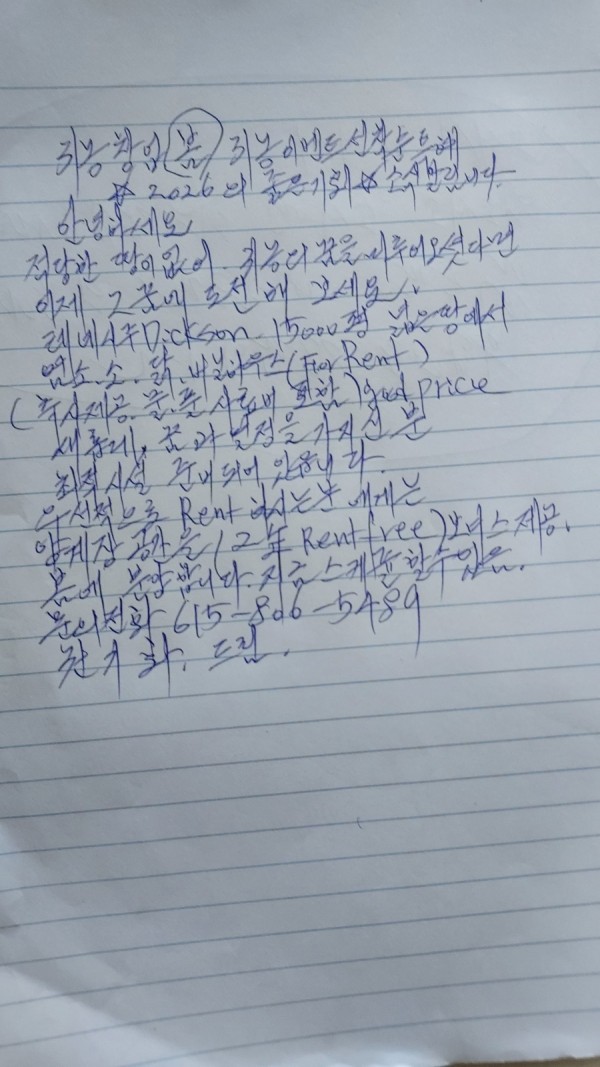 귀농 창업 봄 귀농이벤트
☆ 2026의 좋은기회 ☆ 소식알립니다.
안녕하세요
적당한 땅이없어 귀농의 꿈을 미루어오셧다면
이제 그꿈에 도전해 보세요.
테네시주 Dickson 15000평 넓은땅에서
염소.소.닭.비닐하우스(For Rent)
(주사제공.물.풀 사료비 포함) good price
새둥레, 꿈과 열정을 가지신 분
최적시설 준비되어 있읍니다.
우선적으로 Rent 하시는분에게는
양계장 공간을 (2年 Rent free) 보너스 제공.
봄에 분양합니다. 지금 스케쥴할수있음.
문의전화 615-806-5489
드림.